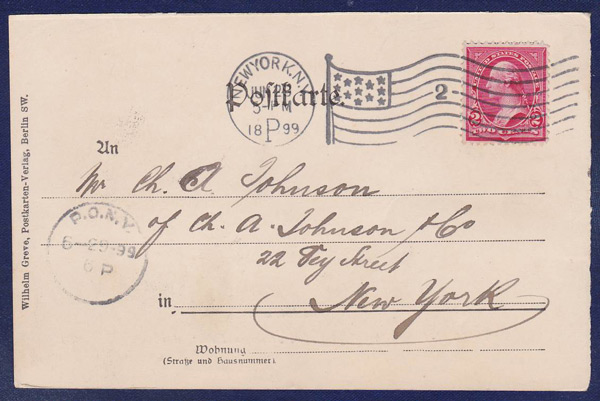 NEW YORK, N.Y.
5-PM
18 P 99
2
UNITED STATES POSTAGE
2 2
TWO CENTS
Postkarte.
An
Mr Ch. A Johnson
of Ch. A. Johnson & Co
22 Dey Street
in New York
Wohnung
(Straße und Hausnummer).
P.O.N.Y.
6-29-99
6 P
Wilhelm Greve, Postkarten-Verlag, Berlin SW.